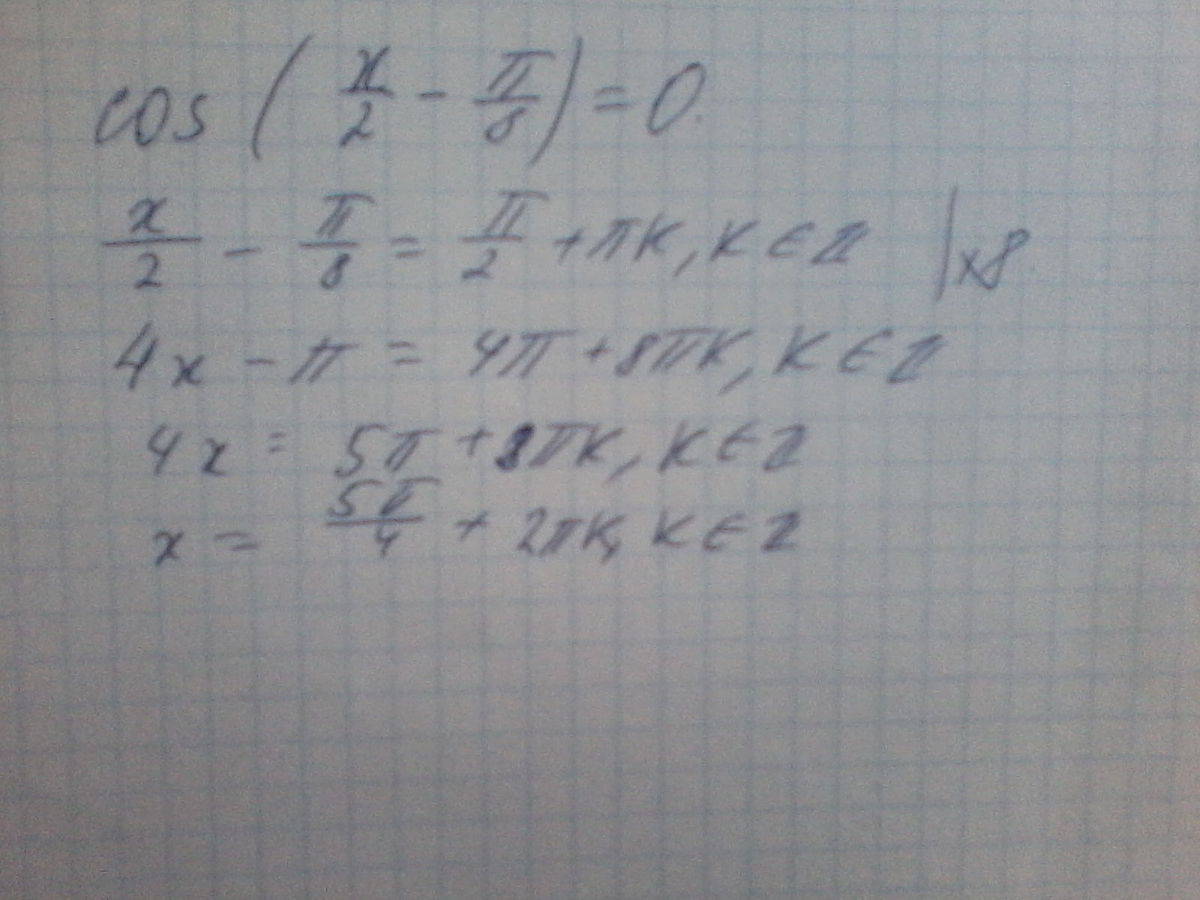 cos (x/2 - π/8) = 0.
x/2 - π/8 = π/2 + πк, к ∈ Z |×8
4x - π = 4π + 8πк, к ∈ Z
4x = 5π + 8πк, к ∈ Z
x = 5π/4 + 2πк, к ∈ Z